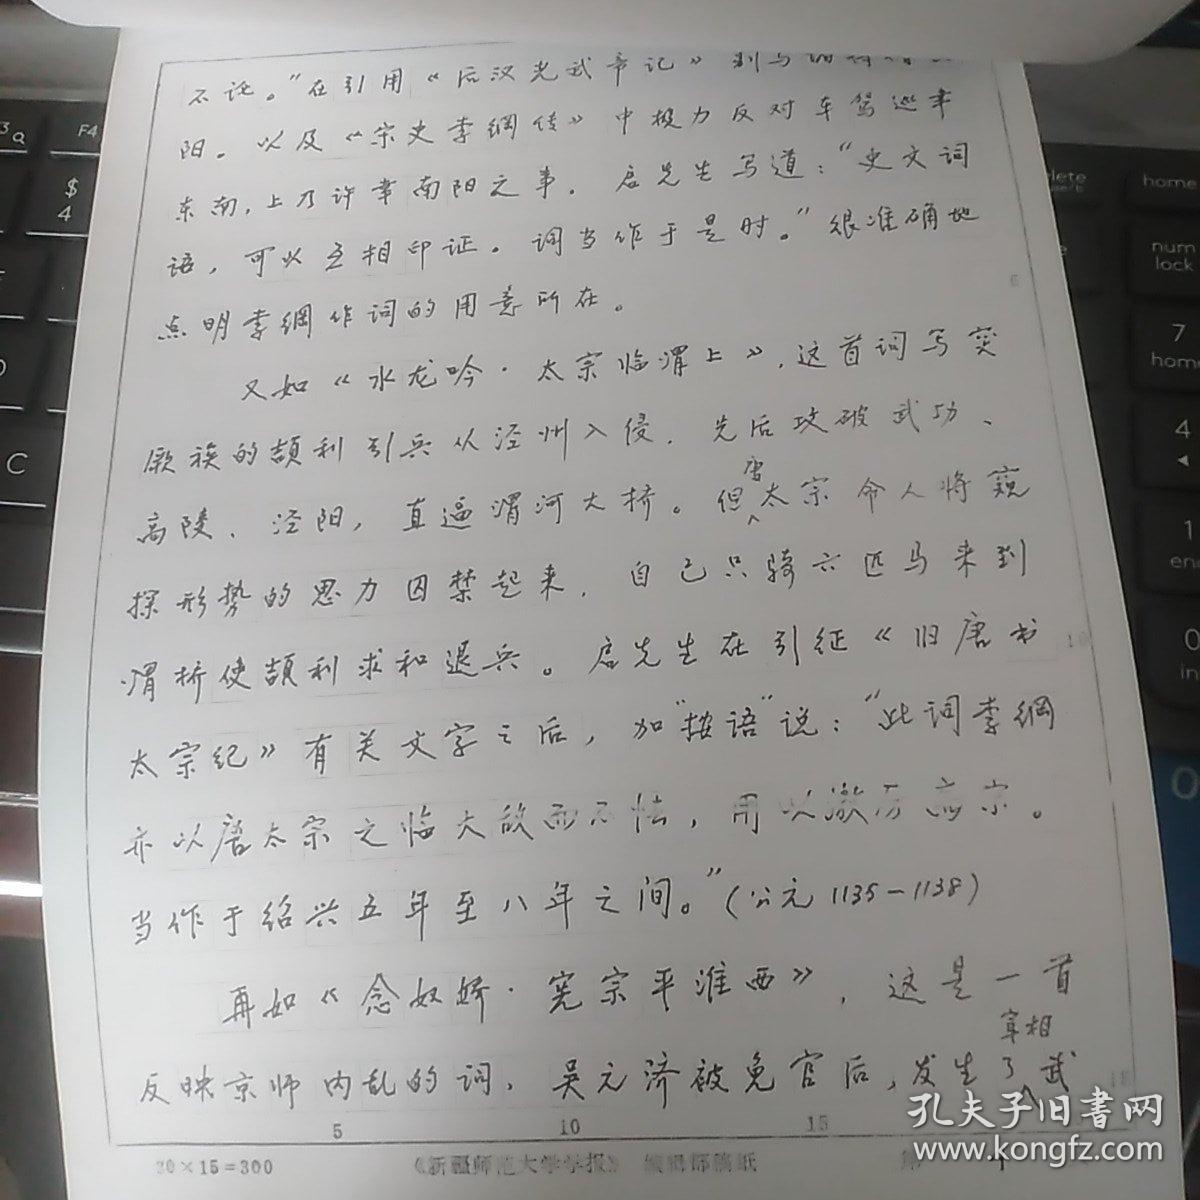 不论。”在引用《后汉光武帝记》到
阳。以及《宋史李綱传》中极力反对车驾巡幸
东南，上乃许幸南阳之事。启先生写道：“史文词
语，可以互相印证。词当作于是时。”很准确地
点明李綱作词的用意所在。
又如《水龙吟·太宗临渭上》，这首词写突
厥族的颉利引兵从泾州入侵，先后攻破武功、
高陵、泾阳，直逼渭河大桥。但唐太宗命人将窥
探形势的思力囚禁起来，自己只骑六匹马来到
渭桥使颉利求和退兵。启先生在引征《旧唐书
太宗纪》有关文字之后，加“按语”说：“此词李綱
亦以唐太宗之临大敌而不怯，用以激厉高宗。
当作于绍兴五年至八年之间。”（公元1135－1138）
再如《念奴娇·宪宗平淮西》，这是一首
反映京师内乱的词，吴元济被免官后，发生了宰相武
5 10 15
20×15=300 《新疆师范大学学报》 编辑部稿纸 第
孔夫子旧书网
www.kongfz.com
F4
$
4
C
home
num
lock
7
home
4
1
0